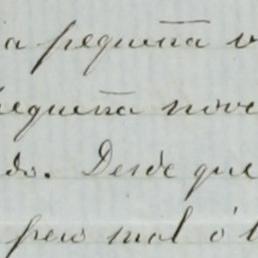 a pequeña v
pequeña nove
do. Desde que
pero mal ó l